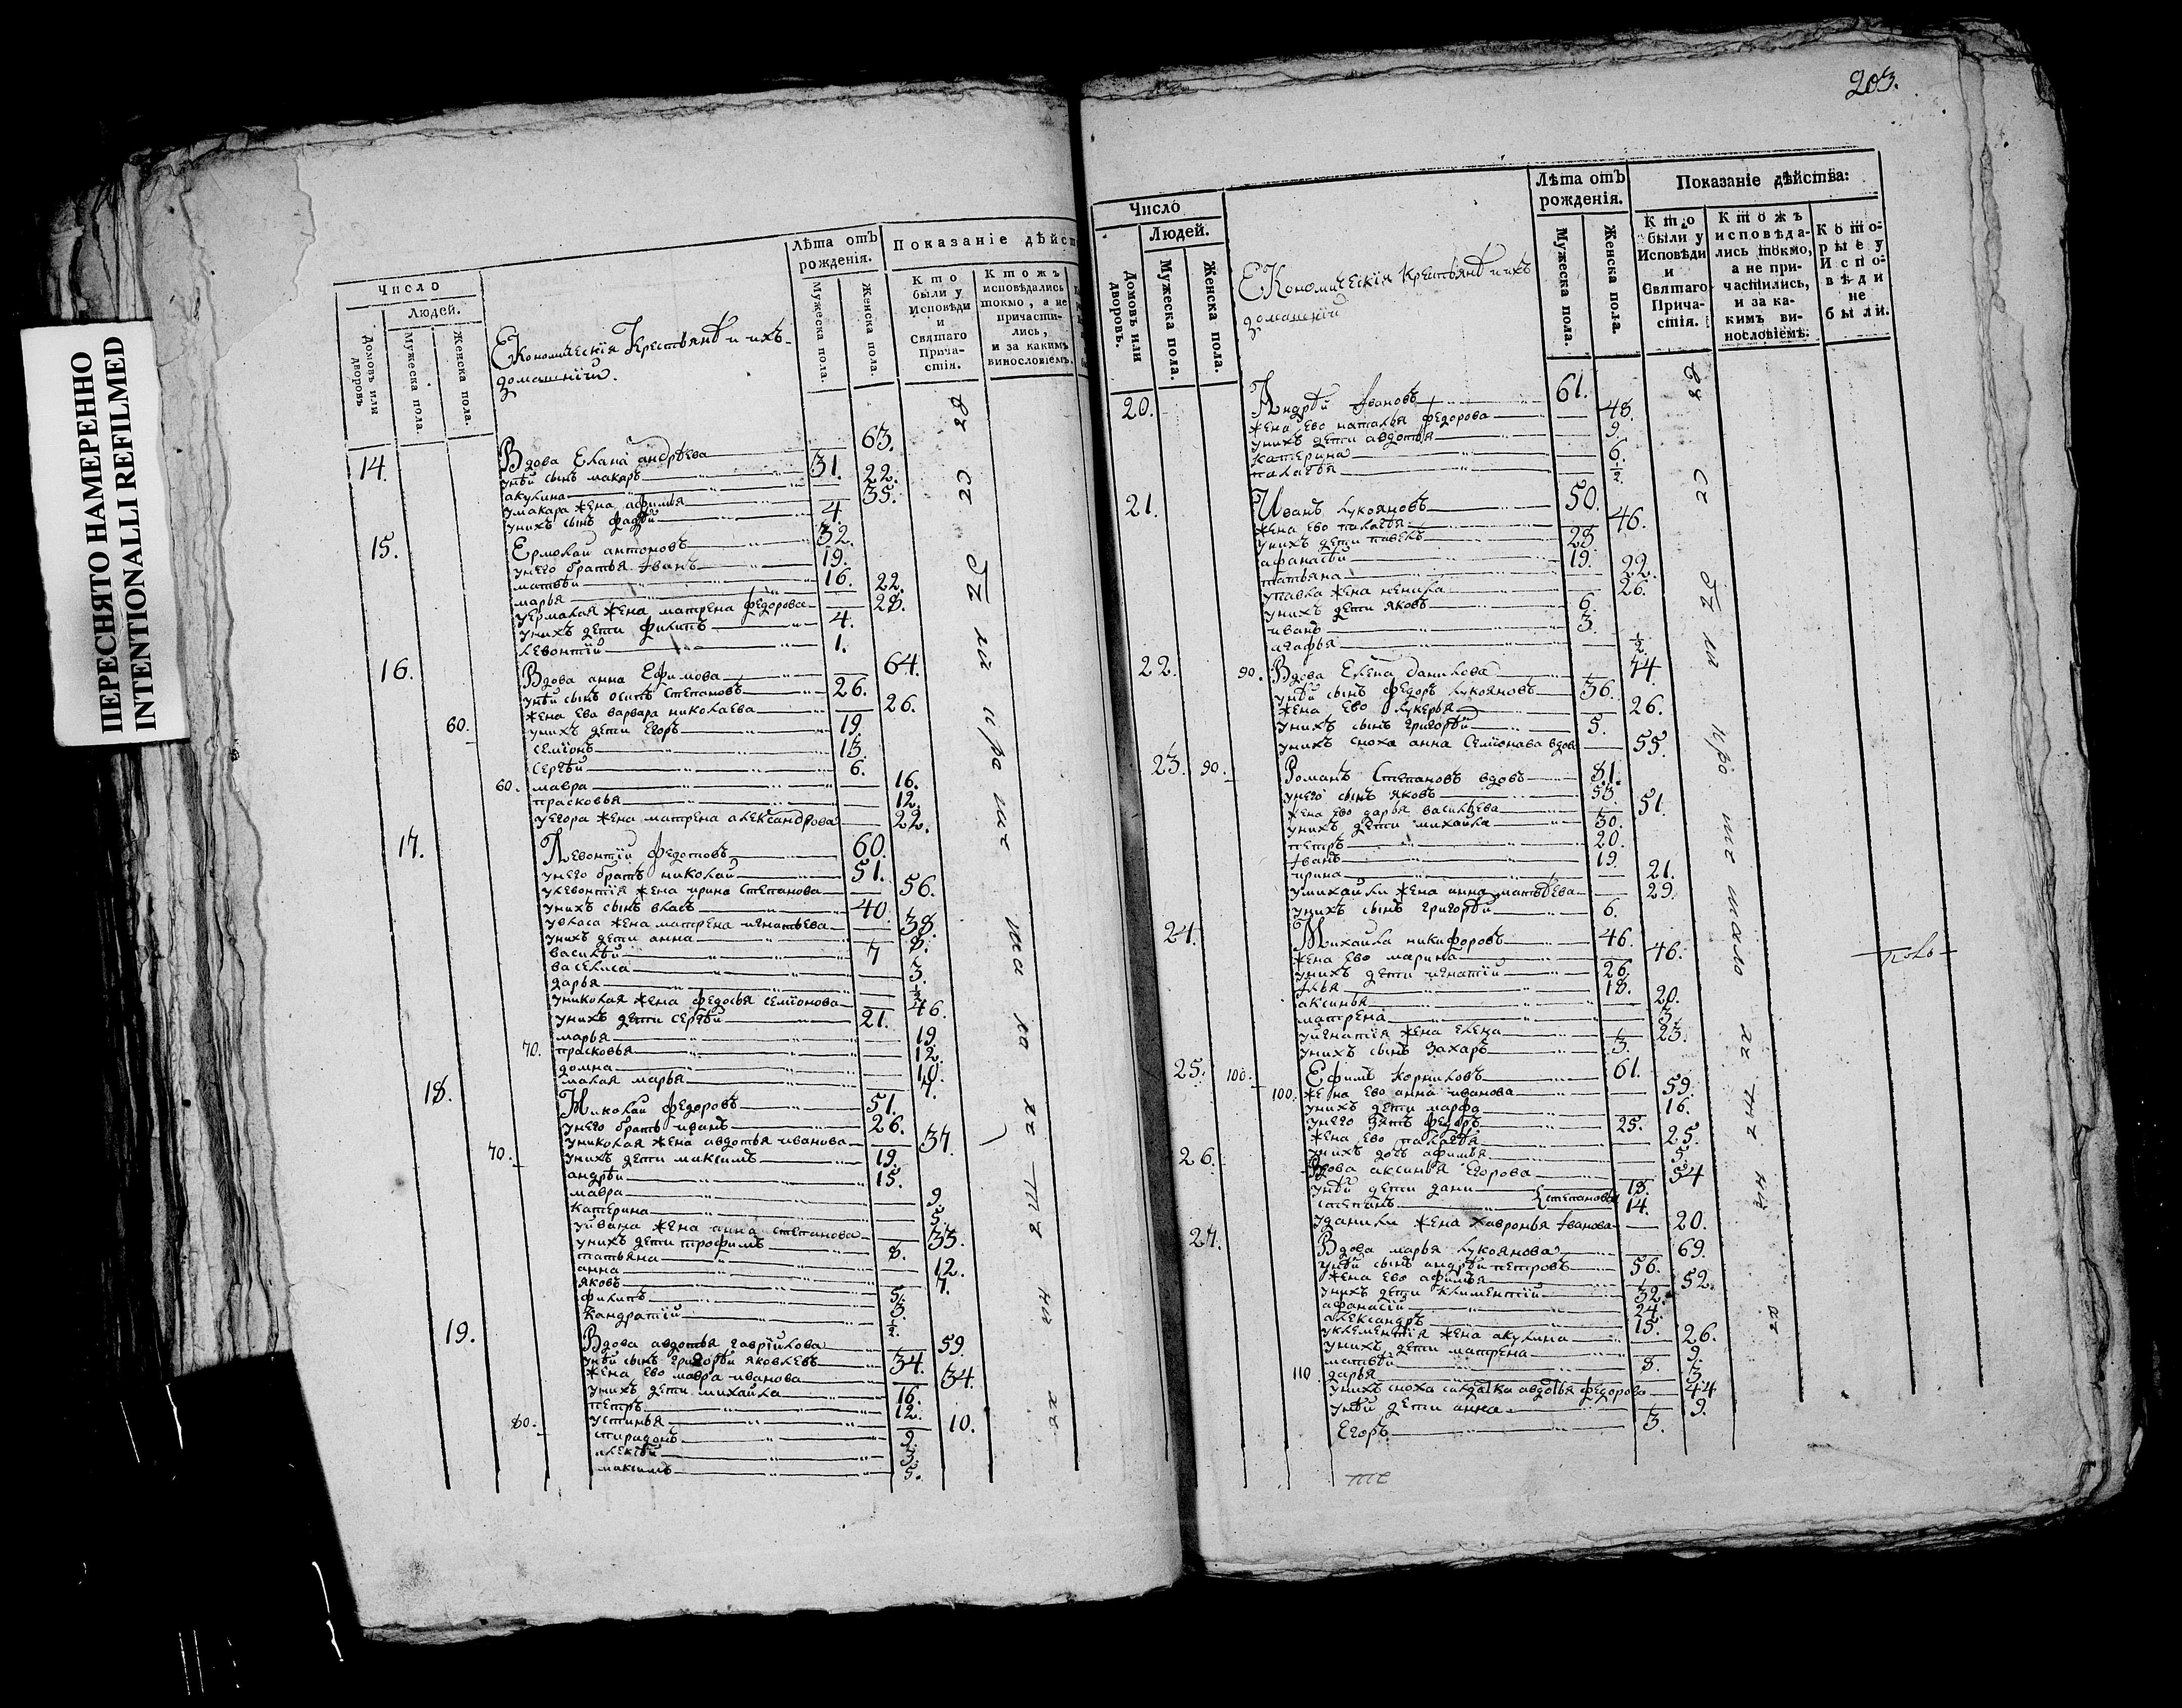 ПЕРЕСНЯТО НАМЕРЕННО
INTENTIONALLI REFILMED
Число
Людей.
Домовъ или дворовъ
Мужеска пола.
Женска пола.
Економическiя Крестьянѣ и ихъ
домашнiи.
Лѣта отъ
рожденiя.
Мужеска пола.
Женска пола.
Показанiе дѣйст
Кто
были у
Исповѣди
и
Святаго
Прича-
стiя.
Ктожъ
исповѣдались
токмо, а не
причасти-
лись,
и за какимъ
винословiемъ.
14. Вдова Елена андрѣева 63.
унѣй сынъ макаръ 31.
акулина 22.
умакара жена афимья 35.
унихъ сынъ фадѣй 4.
15. Ермолай антоновъ 32.
унего братья Iванъ 19.
матвѣй 16.
марья 22.
уермолая жена матрена федорова 28.
унихъ дети филипъ 4.
левонтiй 1.
16. Вдова анна Ефимова 64.
унѣй сынъ осипъ степановъ 26.
жена ево варвара николаева 26.
60. унихъ дети Егоръ 19.
семiонъ 13.
сергѣй 6.
60. мавра 16.
прасковья 12.
уегора жена матрена александрова 22.
17. Левонтiй федотовъ 60.
унего братъ николай 51.
улевонтiя жена ирина степанова 56.
унихъ сынъ власъ 40.
увласа жена матрена игнатьева 38.
унихъ дети анна 8.
василѣй 7
василиса 3.
дарья 1/2
униколая жена федосья семiонова 46.
унихъ дети сергѣй 21.
марья 19.
70. прасковья 12.
домна 10.
малая марья 7.
18. Николай федоровъ 51.
унего братъ иванъ 26.
униколая жена авдотья иванова 37.
70. унихъ дети максимъ 19.
андрѣй 15.
мавра 9.
катерина 5.
уйвана жена анна степанова 33.
унихъ дети трофимъ 8.
татьяна 12.
анна 7.
яковъ 5.
филипъ 3.
кандратiй 1/2.
19. Вдова авдотья гаврiйлова 59.
унѣй сынъ григорѣй яковлевъ 34.
жена ево мавра иванова 34.
унихъ дети михайла 16.
петръ 12.
80. устинья 10.
спиридонъ 9.
алексѣй 3.
максимъ 5.
203.
Число
Людей.
Домовъ или дворовъ.
Мужеска пола.
Женска пола.
Економическiя Крестьянѣ и ихъ
домашнiи
Лѣта отъ
рожденiя.
Мужеска пола.
Женска пола.
Показанiе дѣйства:
Кто
были у
Исповѣди
и
Святаго
Прича-
стiя.
Ктожъ
исповѣда-
лись токмо,
а не при-
частились,
и за ка-
кимъ ви-
нословiемъ.
Кото-
рые у
Испо-
вѣди
не
были.
20. Андрѣй Iвановъ 61.
жена ево наталья федорова 48.
унихъ дети авдотья 9.
катерина 6.
палагѣя 1/2.
21. Иванъ лукояновъ 50.
жена ево палагѣя 46.
унихъ дети павелъ 28.
афанасѣй 19.
татьяна 22.
упавла жена ненила 26.
унихъ дети яковъ 6.
иванъ 3.
агафья 1/2
22. 90. Вдова Елена данилова 74.
унѣй сынъ федоръ лукояновъ 36.
жена ево лукерья 26.
унихъ сынъ григорѣй 5.
унихъ сноха анна Семiонава вдова 55.
23. 90. Романъ Степановъ вдовъ 81.
унего сынъ яковъ 53.
жена ево дарья васильева 51.
унихъ дети михайла 30.
петръ 20.
Iванъ 19.
ирина 21.
умихайлы жена анна матвѣева 29.
унихъ сынъ григорѣй 6.
24. Михайла никифоровъ 46.
жена ево марина 46.
унихъ дети игнатiй 26.
Iлья 18.
аксинья 20.
матрена 3.
уйгнатiя жена елена 23.
унихъ сынъ Захаръ 3.
25. 100. Ефимъ корниловъ 61.
100. жена ево анна иванова 59.
унихъ дети марфа 16.
унего зять федоръ 25.
жена ево палагѣя 25.
унихъ дочь афимья 5.
26. Вдова аксинья Егорова 54
унѣй дети дани 18.
степанъ } степановы 14.
уданилы жена хавронья Iванова 20.
27. Вдова марья лукоянова 69.
унѣй сынъ андрѣй петровъ 56.
жена ево афимья 52.
унихъ дети климентiй 32.
афанасiй 24.
александръ 15.
уклементiя жена акулина 26.
унихъ дети матрена 9.
матвѣй 8.
110 дарья 3
унихъ сноха салдатка авдотья федорова 44
унѣй дети анна 9.
Егоръ 3.